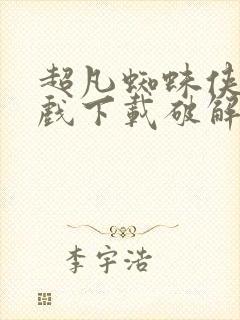 超凡蜘蛛侠
戏下载破解
李宇浩